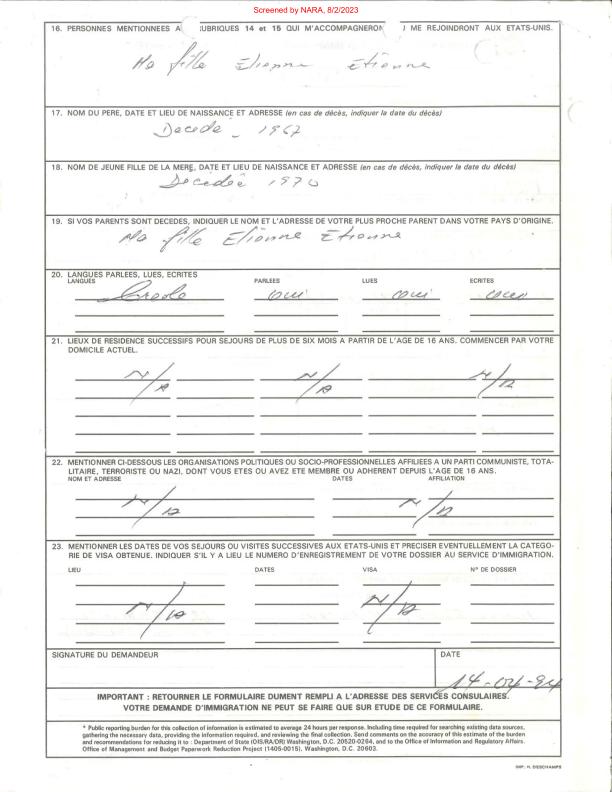 Screened by NARA, 8/2/2023
16. PERSONNES MENTIONNEES A RUBRIQUES 14 et 15 QUI M'ACCOMPAGNERON ME REJOINDRONT AUX ETATS-UNIS.
Ma fille Elionne Etionne
17. NOM DU PERE, DATE ET LIEU DE NAISSANCE ET ADRESSE (en cas de décès, indiquer la date du décès)
Decedé - 1967
18. NOM DE JEUNE FILLE DE LA MERE, DATE ET LIEU DE NAISSANCE ET ADRESSE (en cas de décès, indiquer la date du décès)
Decedeé 1970
19. SI VOS PARENTS SONT DECEDES, INDIQUER LE NOM ET L'ADRESSE DE VOTRE PLUS PROCHE PARENT DANS VOTRE PAYS D'ORIGINE.
Ma fille Elionne Etionne
20. LANGUES PARLEES, LUES, ECRITES
LANGUES PARLEES LUES ECRITES
Creole oui oui oui
21. LIEUX DE RESIDENCE SUCCESSIFS POUR SEJOURS DE PLUS DE SIX MOIS A PARTIR DE L'AGE DE 16 ANS. COMMENCER PAR VOTRE
DOMICILE ACTUEL.
N/A N/A N/A
22. MENTIONNER CI-DESSOUS LES ORGANISATIONS POLITIQUES OU SOCIO-PROFESSIONNELLES AFFILIEES A UN PARTI COMMUNISTE, TOTA-
LITAIRE, TERRORISTE OU NAZI, DONT VOUS ETES OU AVEZ ETE MEMBRE OU ADHERENT DEPUIS L'AGE DE 16 ANS.
NOM ET ADRESSE DATES AFFILIATION
N/A N/A
23. MENTIONNER LES DATES DE VOS SEJOURS OU VISITES SUCCESSIVES AUX ETATS-UNIS ET PRECISER EVENTUELLEMENT LA CATEGO-
RIE DE VISA OBTENUE. INDIQUER S'IL Y A LIEU LE NUMERO D'ENREGISTREMENT DE VOTRE DOSSIER AU SERVICE D'IMMIGRATION.
LIEU DATES VISA Nº DE DOSSIER
N/A N/A
SIGNATURE DU DEMANDEUR DATE
14-04-94
IMPORTANT : RETOURNER LE FORMULAIRE DUMENT REMPLI A L'ADRESSE DES SERVICES CONSULAIRES.
VOTRE DEMANDE D'IMMIGRATION NE PEUT SE FAIRE QUE SUR ETUDE DE CE FORMULAIRE.
* Public reporting burden for this collection of information is estimated to average 24 hours per response. Including time required for searching existing data sources,
gathering the necessary data, providing the information required, and reviewing the final collection. Send comments on the accuracy of this estimate of the burden
and recommendations for reducing it to : Department of State (OIS/RA/DR) Washington, D.C. 20520-0264, and to the Office of Information and Regulatory Affairs.
Office of Management and Budget Paperwork Reduction Project (1405-0015), Washington, D.C. 20603.
IMP. H. DESCHAMPS